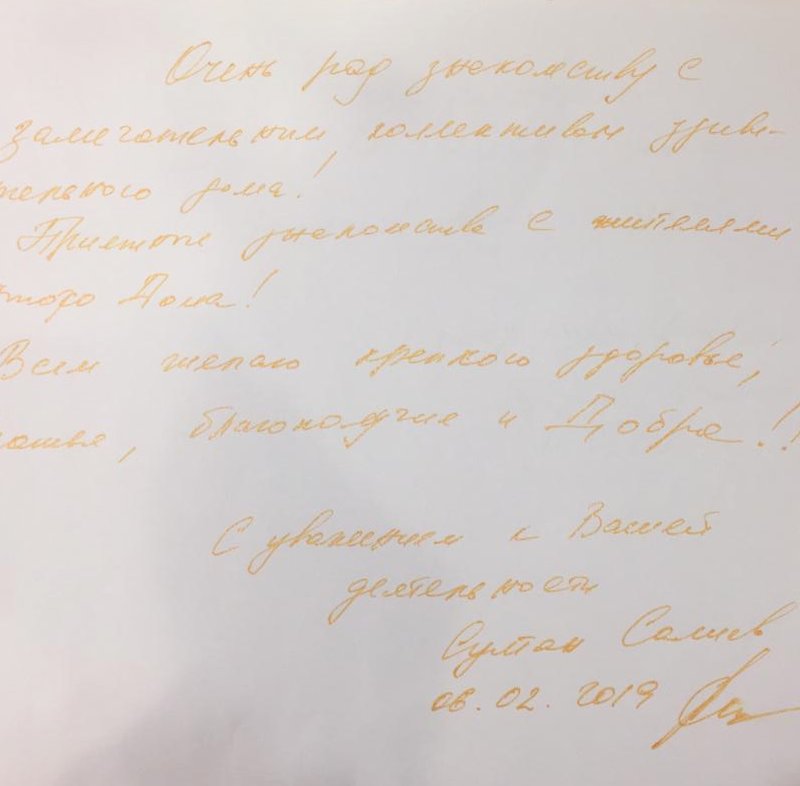 Очень рад знакомству с
замечательным коллективом удиви-
тельного дома!
Приятно знакомство с жителями
этого Дома!
Всем желаю крепкого здоровья,
счастья, благополучия и Добра!!
С уважением к Вашей
деятельности
Султан Салиев
06.02.2019